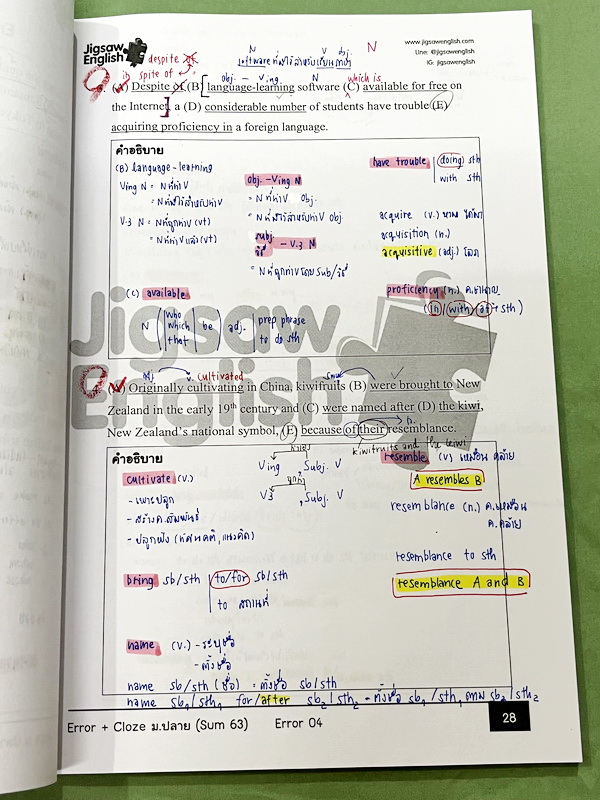 Jigsaw
English
www.jigsawenglish.com
Line: @jigsawenglish
IG: jigsawenglish
N V obj. N
despite of software ที่ใช้สำหรับเรียนภาษา
in spite of obj. - Ving N which is
(A) Despite of (B) language-learning software (C) available for free on
the Internet, a (D) considerable number of students have trouble (E)
acquiring proficiency in a foreign language.
คำอธิบาย
(B) language-learning
Ving N = N ที่ทำ V
= N ที่ใช้สำหรับทำ V
V.3 N = N ที่ถูกทำ (vt)
= N ที่ทำ V แล้ว (vt)
obj. -Ving N
= N ที่ทำ V obj.
= N ที่ใช้สำหรับทำ V obj
subj.
วิธี - V.3 N
= N ที่ถูกทำโดย sub/วิธี
have trouble (doing) sth
with sth
acquire (v.)
acquisition (n.)
acquisitive (adj.) โลภ
proficiency (n.)
(in/with/at + sth)
(C) available
N who which that be adj. prep phrase
to do sth
Jigsaw
English
adj v. cultivated
(A) Originally cultivating in China, kiwifruits (B) were brought to New
Zealand in the early 19th century and (C) were named after (D) the kiwi,
New Zealand's national symbol, (E) because of their resemblance.
n.
kiwifruits and the kiwi
คำอธิบาย
cultivate (v.)
- เพาะปลูก
- สร้างค.สัมพันธ์
- ปลูกฝัง (ทัศนคติ, แนวคิด)
Ving, Subj. V
ถูกทำ
V3, Subj. V
resemble (v) เหมือน คล้าย
A resembles B
resemblance (n.) ค.เหมือน
ค.คล้าย
resemblance to sth
resemblance A and B
bring sb/sth to/for sb/sth
to สถานที่
name (v.) - ระบุชื่อ
- ตั้งชื่อ
name sb/sth (ชื่อ) = ตั้งชื่อ sb/sth
name sb1/sth1 for/after sb2/sth2 = ตั้งชื่อ sb1/sth1 ตาม sb2/sth2
Error + Cloze ม.ปลาย (Sum 63) Error 04 28